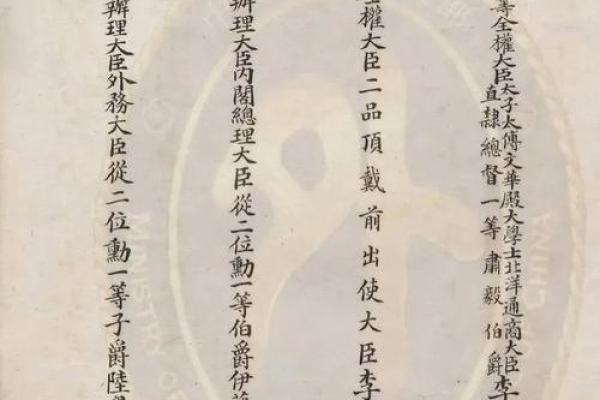 等全權大臣太子太傅文華殿大學士北洋通商大臣
直隸總督一等肅毅伯爵李
全權大臣二品頂戴前出使大臣李
辦理大臣內閣總理大臣從二位勳一等伯爵伊
辦理大臣外務大臣從二位勳一等子爵陸